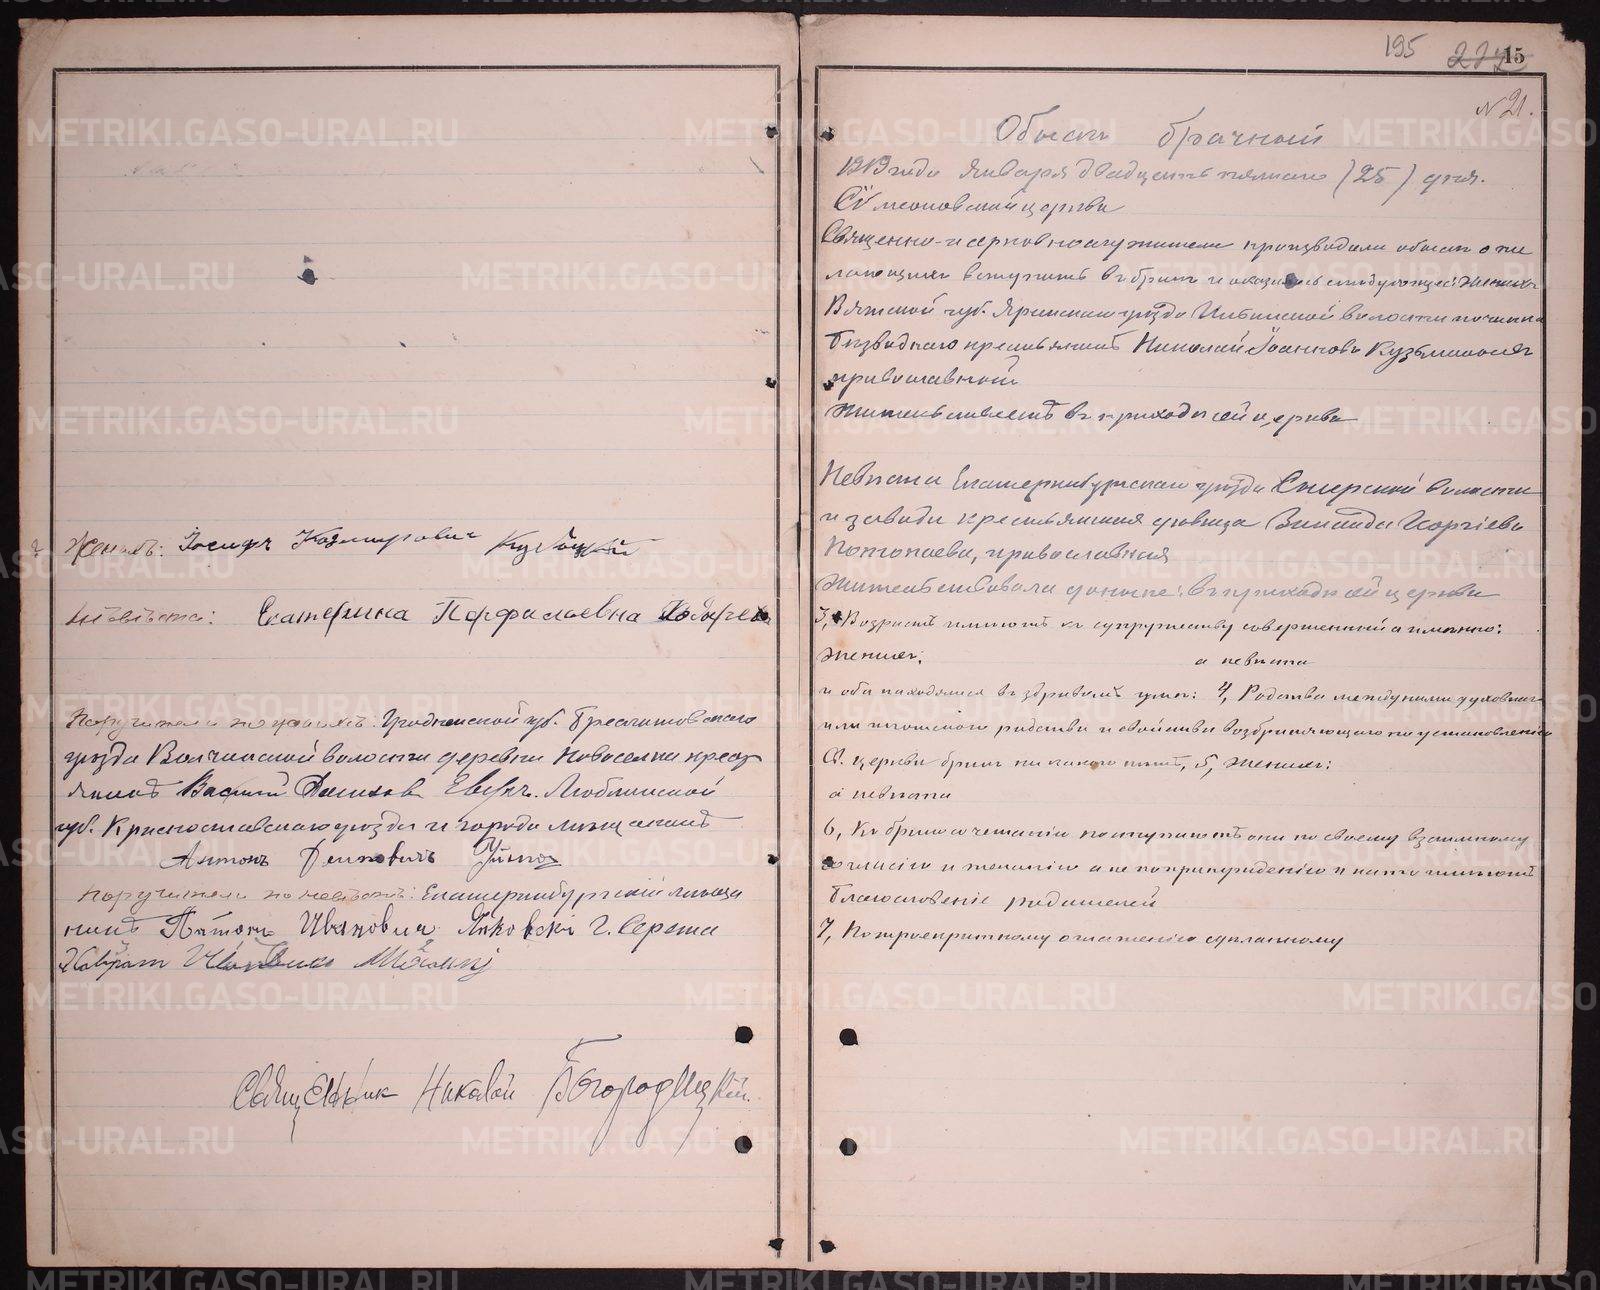 Женихъ: Іосифъ Казимировичъ
невѣста: Екатерина Парфиловна
Поручители по женихѣ: Гродненской губ. Брестлитовскаго
уѣзда Волчинской волости деревни Новоселки крест
янинъ Василій Люблинской
губ. Красноставскаго уѣзда и города мѣщанинъ
Антонъ
поручители по невѣстѣ: Екатеринбургскій мѣща
нинъ Антонъ Ивановичъ
Священникъ Николай Богородицкій.
195
15
№ 21.
Обыскъ брачный
1919 года Января двадцать пятаго (25) дня.
Сѵмеоновской церкви
Священно-церковнослужители производили обыскъ о же
лающихъ вступить въ бракъ и оказалось слѣдующее: Женихъ
Вятской губ. Яранскаго уѣзда волости починка
Безводнаго крестьянинъ Николай Іоанновъ Кузьминыхъ
православной
Жительствуетъ въ приходѣ сей церкви
Невѣста Екатеринбургскаго уѣзда Сысертской волости
и завода крестьянская дѣвица Зинаида Георгіева
Потопаева, православная
Жительствовала донынѣ: въ приходѣ сей церкви
3, Возрастъ имѣютъ къ супружеству совершенный а именно:
Женихъ: а невѣста
и оба находятся въ здравомъ умѣ: 4, Родства между ними духовнаго
или плотского родства и свойства возбраняющаго по установленію
Св. церкви бракъ никакого нѣтъ, 5, Женихъ:
а невѣста
6, Къ бракосочетанію поступаютъ они по своему взаимному
согласію и желанію а не по принужденію и на то имѣютъ
благословеніе родителей
7, По троекратному оглашенію сдѣланному
METRIKI.GASO-URAL.RU